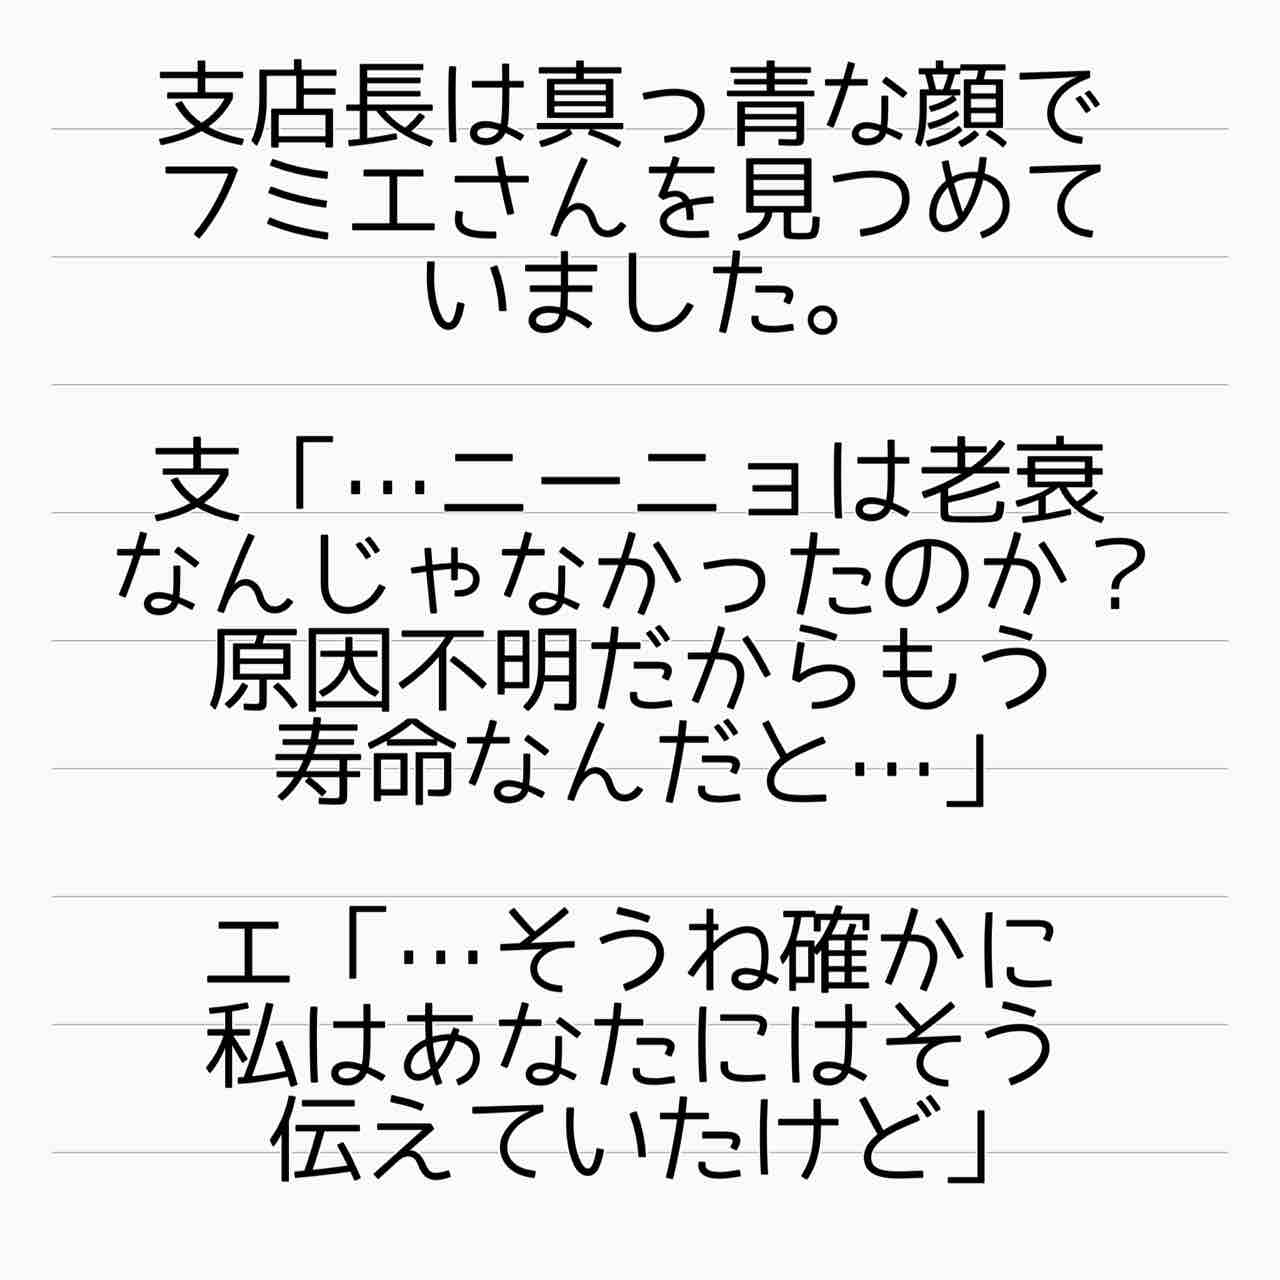 支店長は真っ青な顔で
フミエさんを見つめて
いました。
支「…ニーニョは老衰
なんじゃなかったのか？
原因不明だからもう
寿命なんだと…」
エ「…そうね確かに
私はあなたにはそう
伝えていたけど」